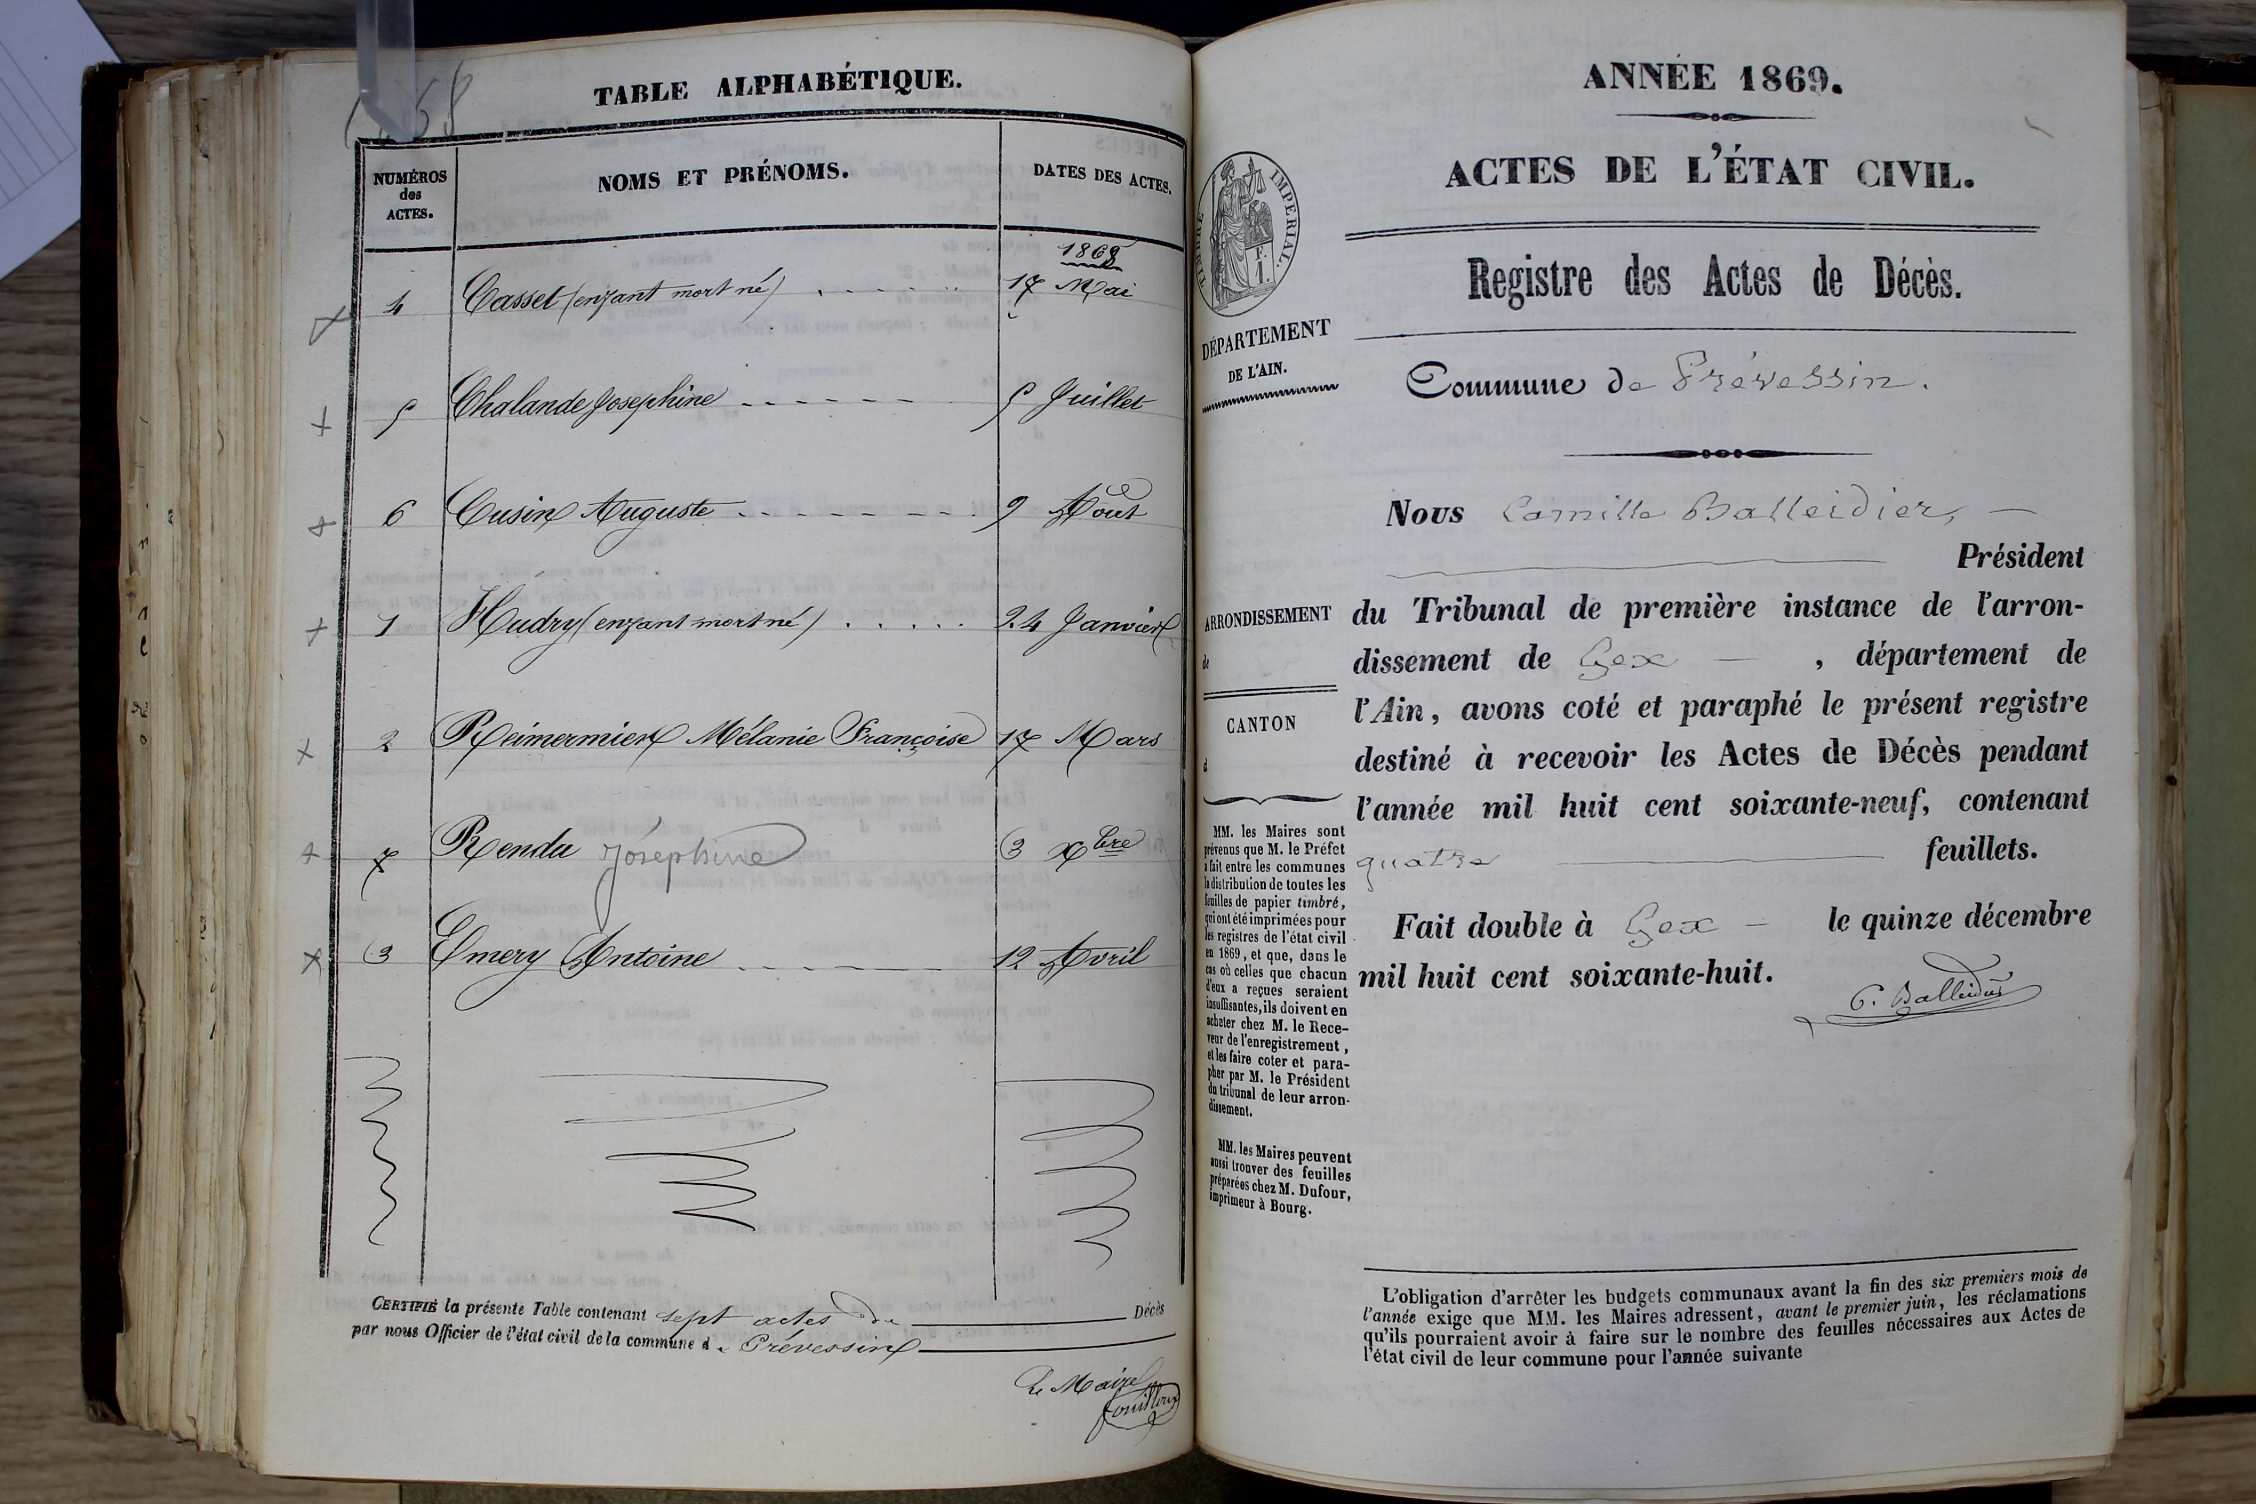 1868
TABLE ALPHABÉTIQUE.
NUMÉROS
des
ACTES.
NOMS ET PRÉNOMS.
DATES DES ACTES.
1868
4 Casset (enfant mort né) . . . . . . 17 Mai
5 Chalande Josephine - - - - - - 5 Juillet
6 Cusin Auguste - - - - - - - - 9 Août
1 Hudry (enfant mort né) . . . . . 24 Janvier
2 Reimermier Mélanie Françoise 17 Mars
7 Rendu Joséphine 3 Xbre
3 Emery Antoine - - - - - - 12 Avril
CERTIFIÉ la présente Table contenant sept actes de Décès
par nous Officier de l'état civil de la commune de Prévessin
Le Maire
Fouilloux
ANNÉE 1869.
ACTES DE L'ÉTAT CIVIL.
TIMBRE IMPÉRIAL.
F.
1.
Registre des Actes de Décès.
DÉPARTEMENT
DE L'AIN.
Commune de Prévessin.
Nous Camille Balleidier, —
Président
du Tribunal de première instance de l'arron-
dissement de Gex — , département de
l'Ain, avons coté et paraphé le présent registre
destiné à recevoir les Actes de Décès pendant
l'année mil huit cent soixante-neuf, contenant
quatre feuillets.
Fait double à Gex — le quinze décembre
mil huit cent soixante-huit.
C. Balleidier
ARRONDISSEMENT
de
CANTON
d
MM. les Maires sont
prévenus que M. le Préfet
a fait entre les communes
la distribution de toutes les
feuilles de papier timbré,
qui ont été imprimées pour
les registres de l'état civil
en 1869, et que, dans le
cas où celles que chacun
d'eux a reçues seraient
insuffisantes, ils doivent en
acheter chez M. le Rece-
veur de l'enregistrement,
et les faire coter et para-
pher par M. le Président
du tribunal de leur arron-
dissement.
MM. les Maires peuvent
aussi trouver des feuilles
préparées chez M. Dufour,
imprimeur à Bourg.
L'obligation d'arrêter les budgets communaux avant la fin des six premiers mois de
l'année exige que MM. les Maires adressent, avant le premier juin, les réclamations
qu'ils pourraient avoir à faire sur le nombre des feuilles nécessaires aux Actes de
l'état civil de leur commune pour l'année suivante